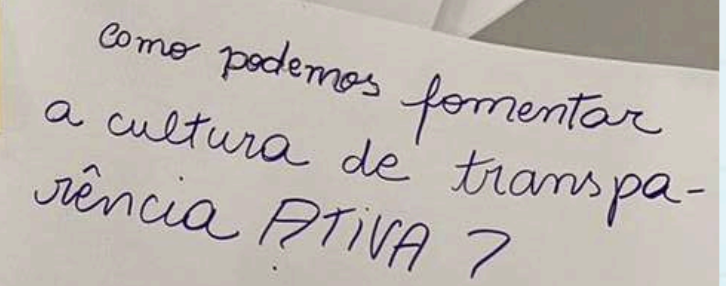 como podemos fomentar
a cultura de transpa-
rência ATiVA ?